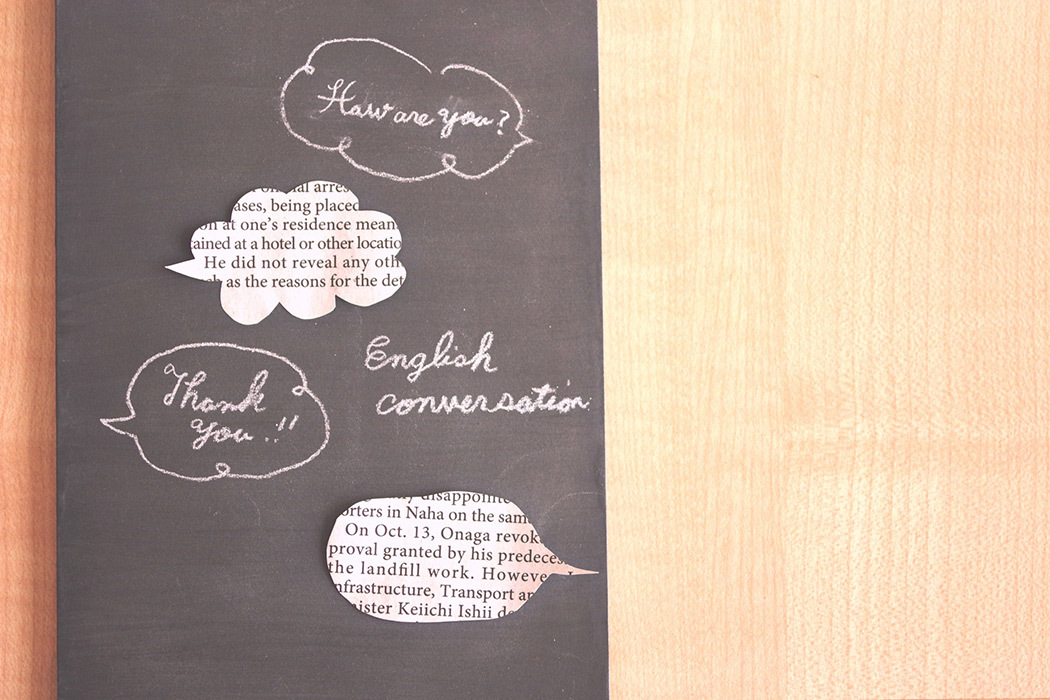 How are you?
al arres
ases, being placed
on at one's residence mean
tained at a hotel or other locatio
He did not reveal any oth
ch as the reasons for the det
English
conversation
Thank
You!!
disappointe
orters in Naha on the sam
On Oct. 13, Onaga revok
proval granted by his predeces
the landfill work. Howeve
nfrastructure, Transport an
nister Keiichi Ishii de